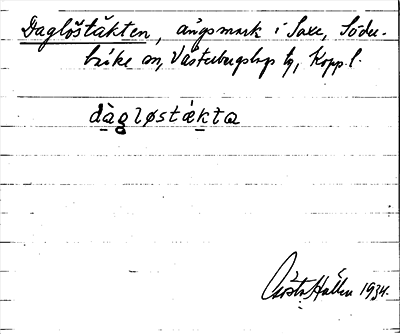 Daglöstäkten, ängsmark i Saxe, Söder-
bärke sn, Västerbergslags tg, Kopp. l.
dàgløstækta
Gösta Hallén 1934.